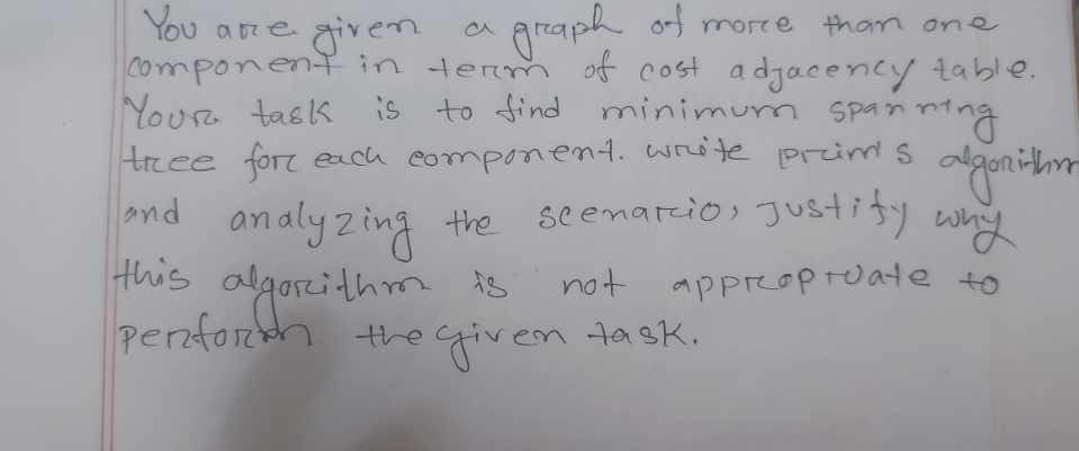 You are given a graph of more than one
component in term of cost adjacency table.
Your task is to find minimum spanning
tree for each component. write prim's algorithm
and analyzing the scenario, Justify why
this algorithm is not appropriate to
perform the given task.